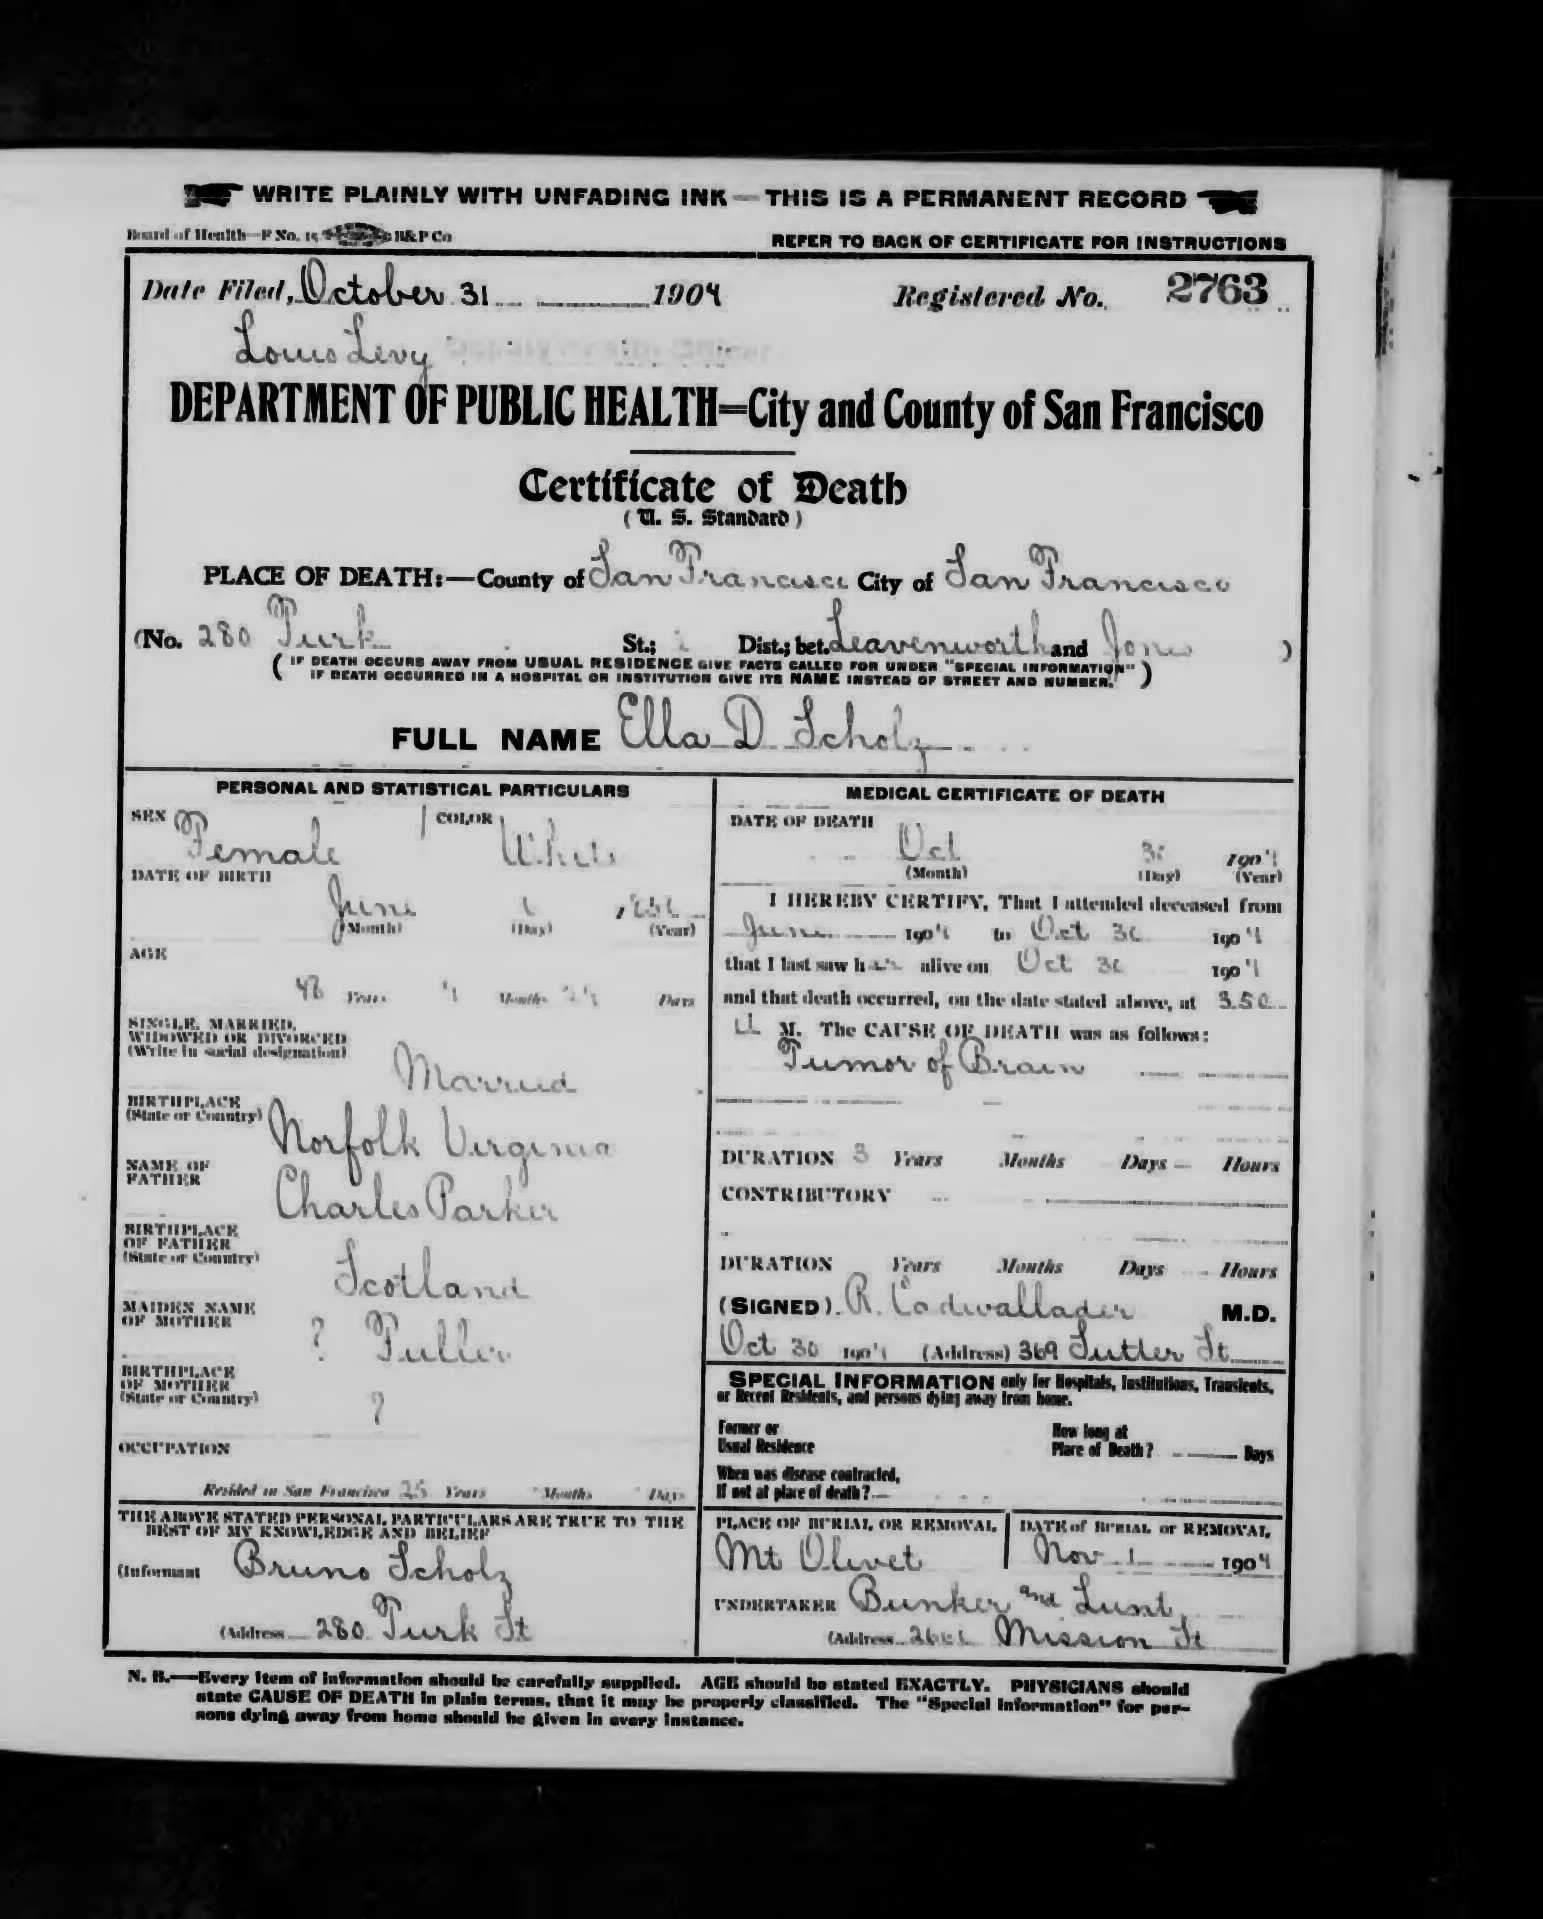 WRITE PLAINLY WITH UNFADING INK — THIS IS A PERMANENT RECORD
Board of Health—F No. 15 B&P Co
REFER TO BACK OF CERTIFICATE FOR INSTRUCTIONS
Date Filed, October 31 1904 Registered No. 2763
Louis Levy
DEPARTMENT OF PUBLIC HEALTH=City and County of San Francisco
Certificate of Death
(U. S. Standard)
PLACE OF DEATH:—County of San Francisco City of San Francisco
(No. 280 Turk St.; Dist.; bet. Leavenworth and Jones )
( IF DEATH OCCURS AWAY FROM USUAL RESIDENCE GIVE FACTS CALLED FOR UNDER "SPECIAL INFORMATION"
IF DEATH OCCURRED IN A HOSPITAL OR INSTITUTION GIVE ITS NAME INSTEAD OF STREET AND NUMBER. )
FULL NAME Ella D Scholz
PERSONAL AND STATISTICAL PARTICULARS
SEX Female COLOR White
DATE OF BIRTH
June
(Month) (Day) (Year)
AGE
48 Years 4 Months 24 Days
SINGLE, MARRIED,
WIDOWED OR DIVORCED
(Write in social designation)
Married
BIRTHPLACE
(State or Country)
Norfolk Virginia
NAME OF
FATHER
Charles Parker
BIRTHPLACE
OF FATHER
(State or Country)
Scotland
MAIDEN NAME
OF MOTHER
? Fuller
BIRTHPLACE
OF MOTHER
(State or Country)
?
OCCUPATION
Resided in San Francisco 25 Years Months Days
THE ABOVE STATED PERSONAL PARTICULARS ARE TRUE TO THE
BEST OF MY KNOWLEDGE AND BELIEF
(Informant Bruno Scholz
(Address 280 Turk St
MEDICAL CERTIFICATE OF DEATH
DATE OF DEATH
Oct 30 1904
(Month) (Day) (Year)
I HEREBY CERTIFY, That I attended deceased from
June 1904 to Oct 30 1904
that I last saw her alive on Oct 30 1904
and that death occurred, on the date stated above, at 3.50
M. The CAUSE OF DEATH was as follows:
Tumor of Brain
DURATION 3 Years Months Days Hours
CONTRIBUTORY
DURATION Years Months Days Hours
(SIGNED) R. Cadwallader M.D.
Oct 30 1904 (Address) 369 Sutter St
SPECIAL INFORMATION only for Hospitals, Institutions, Transients,
or Recent Residents, and persons dying away from home.
Former or
Usual Residence
How long at
Place of Death? Days
When was disease contracted,
If not at place of death?
PLACE OF BURIAL OR REMOVAL
Mt Olivet
DATE of BURIAL or REMOVAL
Nov 1 1904
UNDERTAKER Bunker and Lunt
(Address Mission St
N. B.—Every item of information should be carefully supplied. AGE should be stated EXACTLY. PHYSICIANS should
state CAUSE OF DEATH in plain terms, that it may be properly classified. The "Special Information" for per-
sons dying away from home should be given in every instance.